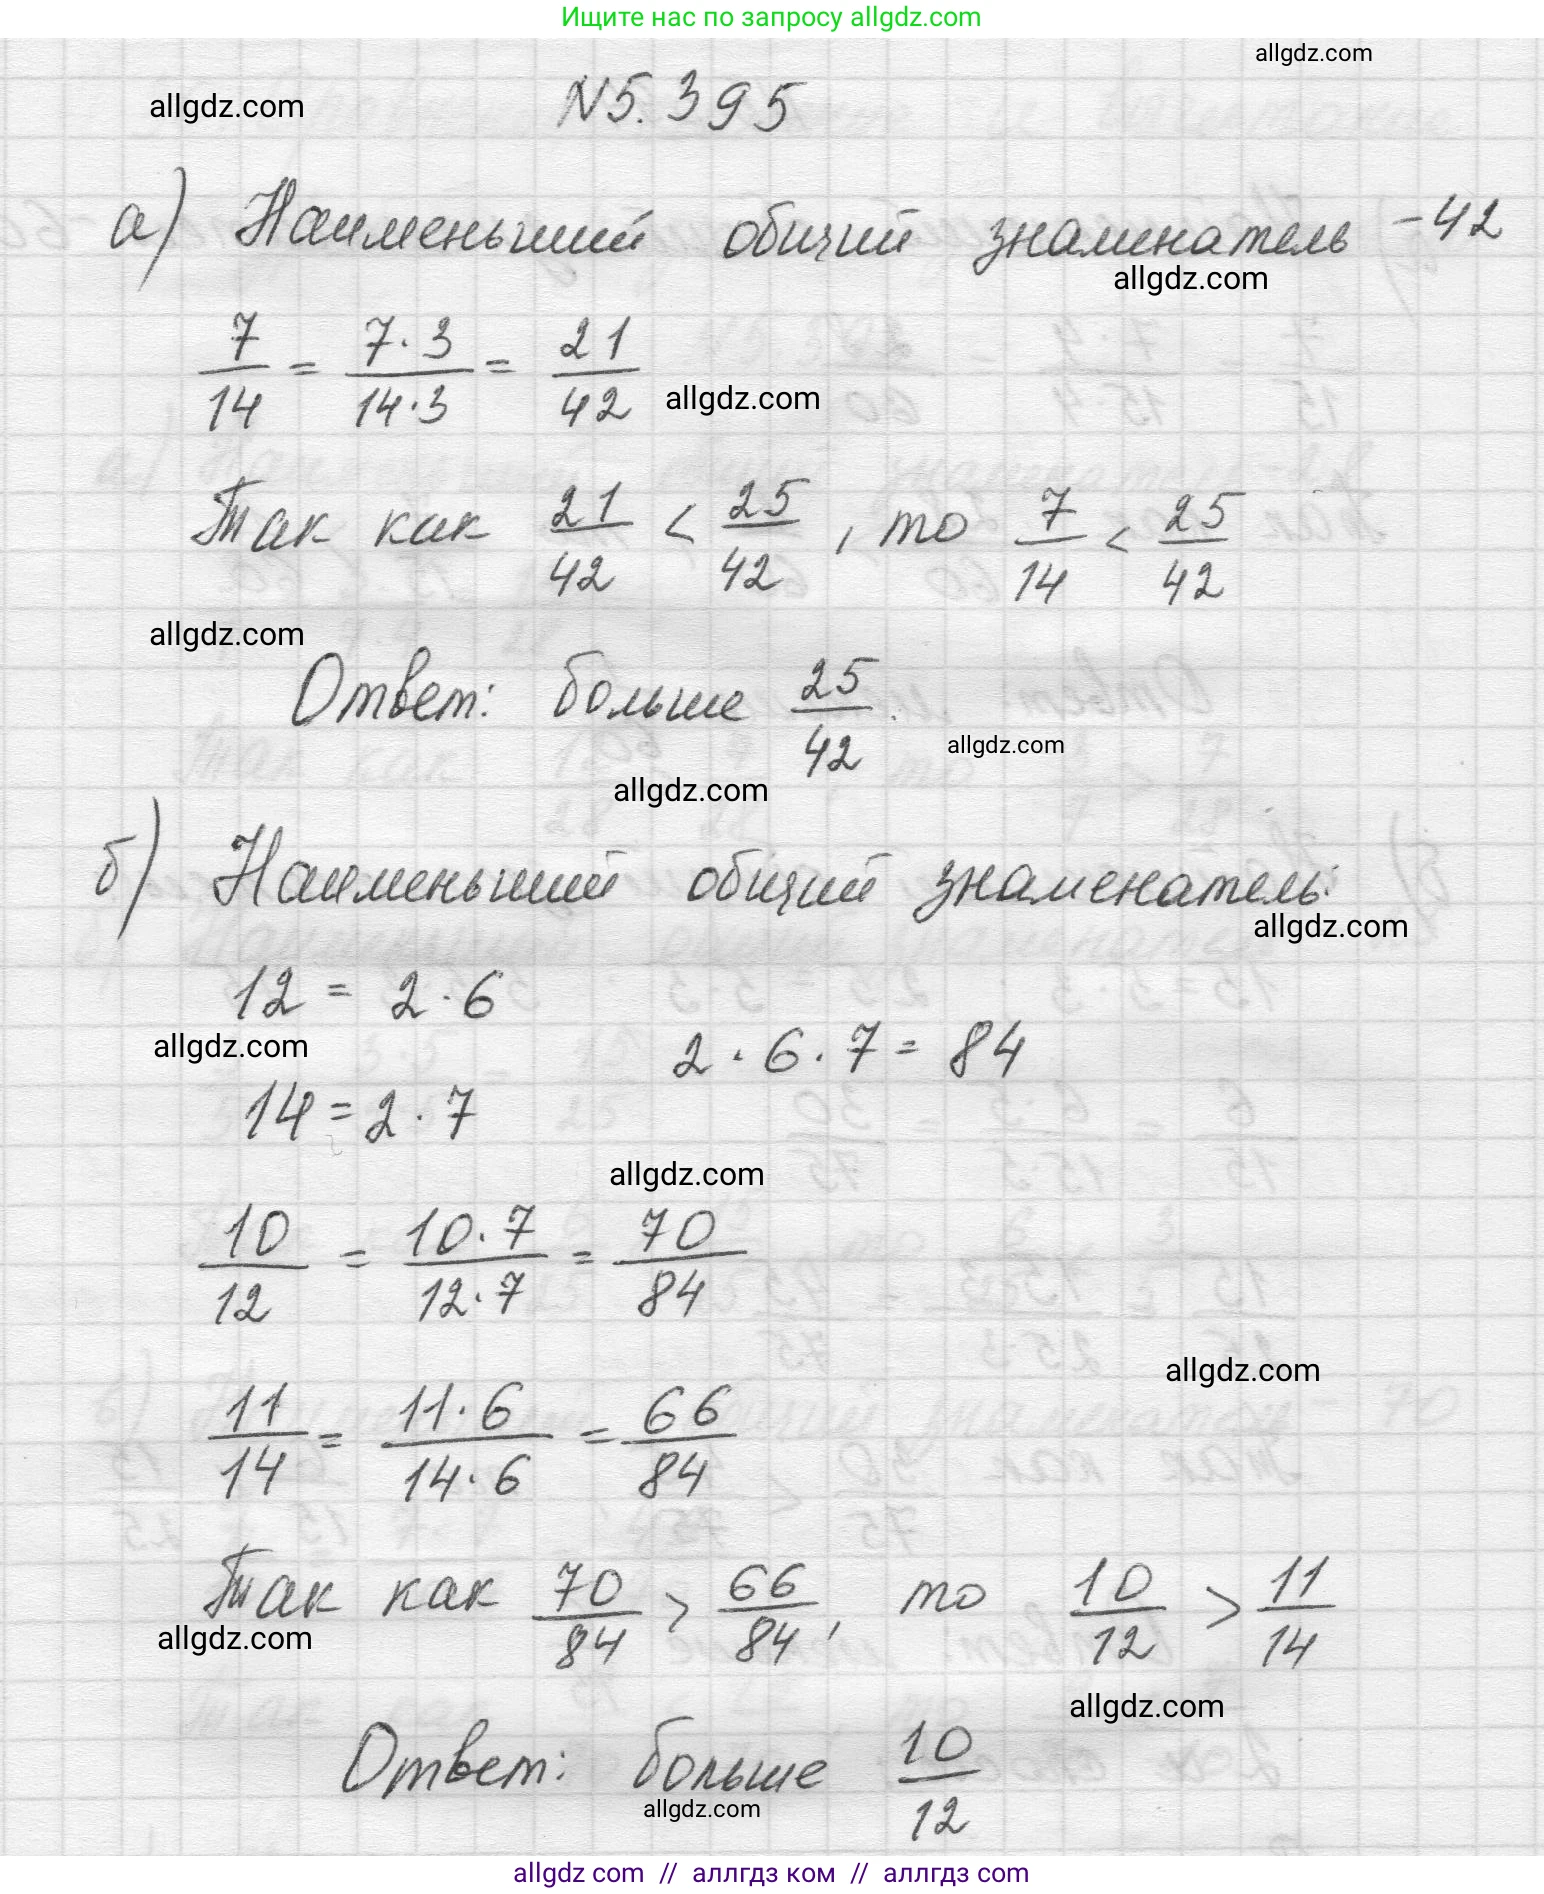 Ищите нас по запросу allgdz.com
allgdz.com
allgdz.com
N5.395
а) Наименьший общий знаменатель - 42
allgdz.com
7/14 = 7·3/14·3 = 21/42
allgdz.com
Так как 21/42 < 25/42, то 7/14 < 25/42
allgdz.com
Ответ: больше 25/42.
allgdz.com
allgdz.com
б) Наименьший общий знаменатель:
allgdz.com
12 = 2·6
allgdz.com
2·6·7 = 84
14 = 2·7
allgdz.com
10/12 = 10·7/12·7 = 70/84
allgdz.com
11/14 = 11·6/14·6 = 66/84
Так как 70/84 > 66/84, то 10/12 > 11/14
allgdz.com
allgdz.com
Ответ: больше 10/12
allgdz.com
allgdz com // аллгдз ком // аллгдз com